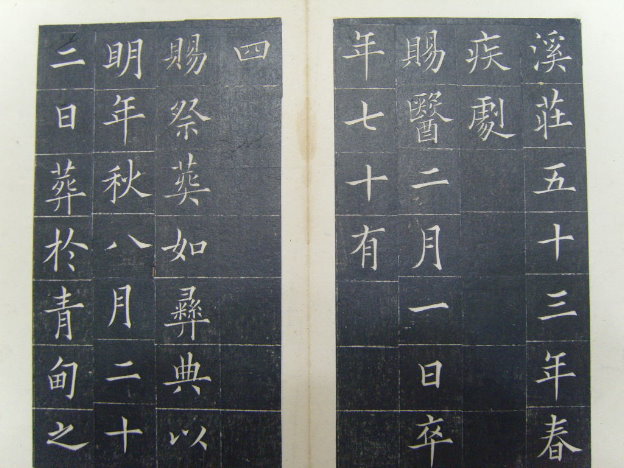 溪莊五十三年春
疾劇
賜醫二月一日卒
年七十有
四
賜祭葬如彞典以
明年秋八月二十
二日葬於青甸之